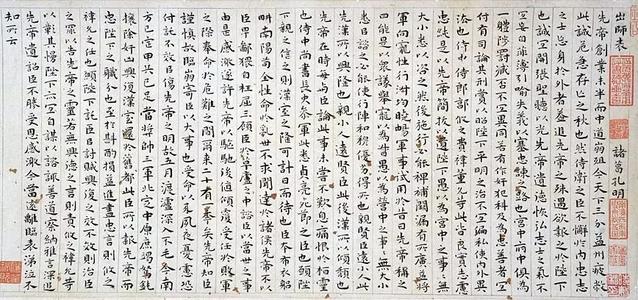 出師表 諸葛孔明
先帝創業未半而中道崩殂今天下三分益州疲敝
此誠危急存亡之秋也然侍衛之臣不懈於內忠志
之士忘身於外者蓋追先帝之殊遇欲報之於陛下
也誠宜開張聖聽以光先帝遺德恢弘志士之氣不
宜妄自菲薄引喻失義以塞忠諫之路也宮中府中俱為
一體陟罰臧否不宜異同若有作奸犯科及為忠善者宜
付有司論其刑賞以昭陛下平明之治不宜偏私使內外異
法也侍中侍郎郭攸之費禕董允等此皆良實志慮
忠純是以先帝簡拔以遺陛下愚以為宮中之事事無
大小悉以咨之然後施行必能裨補闕漏有所廣益將
軍向寵性行淑均曉暢軍事試用於昔日先帝稱之
曰能是以眾議舉寵為督愚以為營中之事事無大小
悉以咨之必能使行陣和穆優劣得所也親賢臣遠小人此
先漢所以興隆也親小人遠賢臣此後漢所以傾頹也
先帝在時每與臣論此事未嘗不歎息痛恨於桓靈
也侍中尚書長史參軍此悉貞亮死節之臣也願陛
下親之信之則漢室之隆可計日而待也臣本布衣躬
耕南陽苟全性命於亂世不求聞達於諸侯先帝不以
臣卑鄙猥自枉屈三顧臣於草廬之中諮臣以當世之事
由是感激遂許先帝以驅馳後值傾覆受任於敗軍
之際奉命於危難之間爾來二十有一年矣先帝知臣
謹慎故臨崩寄臣以大事也受命以來夙夜憂慮恐
付託不效以傷先帝之明故五月渡瀘深入不毛今南
方已定甲兵已足當獎帥三軍北定中原庶竭駑鈍
攘除奸凶興復漢室還於舊都此臣所以報先帝而忠
陛下之職分也至於斟酌損益進盡忠言則攸之
禕允之任也願陛下託臣以討賊興復之效不效則治臣
之罪以告先帝之靈若無興德之言則責攸之禕允等
咎以彰其慢陛下亦宜自謀以諮諏善道察納雅言深追
先帝遺詔臣不勝受恩感激今當遠離臨表涕泣不
知所云